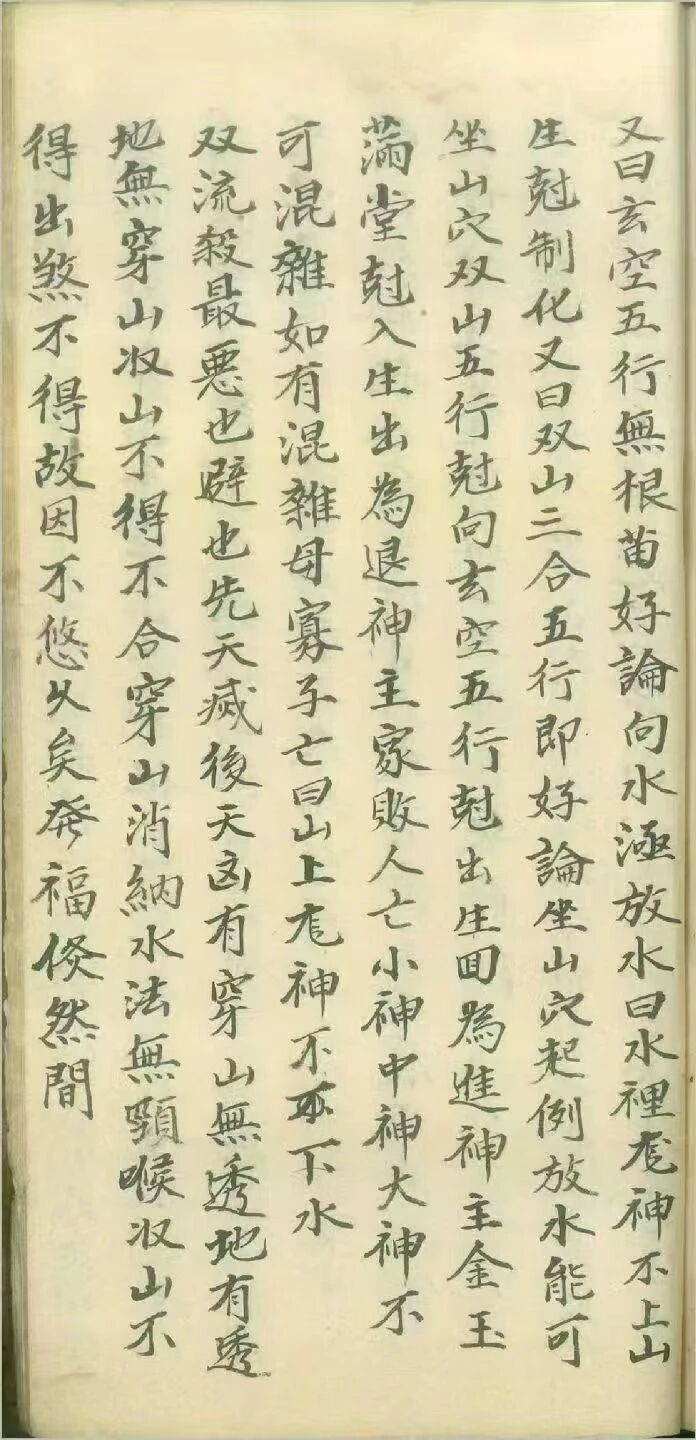 又曰玄空五行無根苗好論向水極放水曰水裡龙神不上山
生尅制化又曰双山三合五行即好論坐山穴起例放水能可
坐山穴双山五行尅向玄空五行尅出生囬為進神主金玉
滿堂尅入生出為退神主家敗人亡小神中神大神不
可混雜如有混雜母寡子亡曰山上龙神不下水
双流殺最悪也避也先天烕後天凶有穿山無透地有透
地無穿山收山不得不合穿山消納水法無頸喉收山不
得出煞不得故因不悠久矣發福倐然間